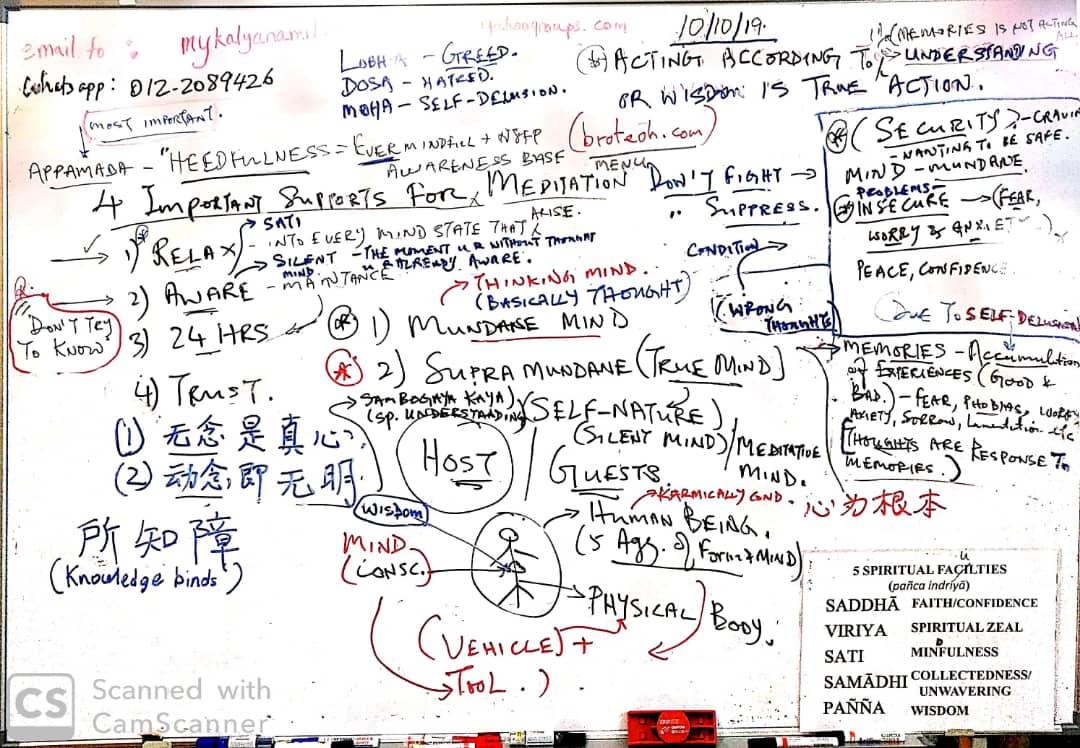 Email to : mykalyanami yahoogroups.com
Whatsapp : 012-2089426
10/10/19.
LOBHA - GREED.
DOSA - HATRED.
MOHA - SELF-DELUSION.
MEMORIES IS NOT ACTING AT ALL.
ACTING ACCORDING TO UNDERSTANDING
OR WISDOM IS TRUE ACTION.
MOST IMPORTANT.
APPAMADA - "HEEDFULNESS = EVER MINDFUL + N8FP
AWARENESS BASE
(broteoh.com)
MENU
4 IMPORTANT SUPPORTS FOR MEDITATION
1) RELAX
SATI
- INTO EVERY MIND STATE THAT ARISE.
SILENT MIND. - THE MOMENT U R WITHOUT THOUGHT
U R ALREADY AWARE.
2) AWARE - MAINTANCE
3) 24 HRS
4) TRUST.
"DON'T TRY
TO KNOW"
DON'T FIGHT →
" SUPPRESS.
CONDITION →
(WRONG
THOUGHTS)
(SECURITY) - CRAVING
- WANTING TO BE SAFE.
MIND - MUNDANE.
PROBLEMS -
INSECURE → (FEAR,
WORRY & ANXIETY)
PEACE, CONFIDENCE
(DUE TO SELF-DELUSION)
THINKING MIND.
(BASICALLY THOUGHT)
(OR) 1) MUNDANE MIND
2) SUPRA MUNDANE (TRUE MIND)
SAMBOGAYA KAYA)
(SP. UNDERSTANDING)
(SELF-NATURE)
(SILENT MIND)
/MEDITATIVE
MIND.
MEMORIES - Accumulation
of EXPERIENCES (GOOD &
BAD.) - FEAR, PHOBIAS, WORRY
ANXIETY, SORROW, Lamentation etc
[THOUGHTS ARE RESPONSE TO
MEMORIES.)
(1) 无念是真心.
(2) 动念,即无明.
所知障
(Knowledge binds')
HOST
GUESTS.
KARMICALLY GND.
心为根本
HUMAN BEING.
(5 Agg. of Form & MIND)
WISDOM
MIND
(CONSC.
PHYSICAL BODY.
(VEHICLE) +
TOOL.)
5 SPIRITUAL FACILTIES
u
(pañca indriyā)
SADDHĀ FAITH/CONFIDENCE
VIRIYA SPIRITUAL ZEAL
SATI MINFULNESS
D
SAMĀDHI COLLECTEDNESS/
UNWAVERING
PAÑÑA WISDOM
CS
Scanned with
CamScanner